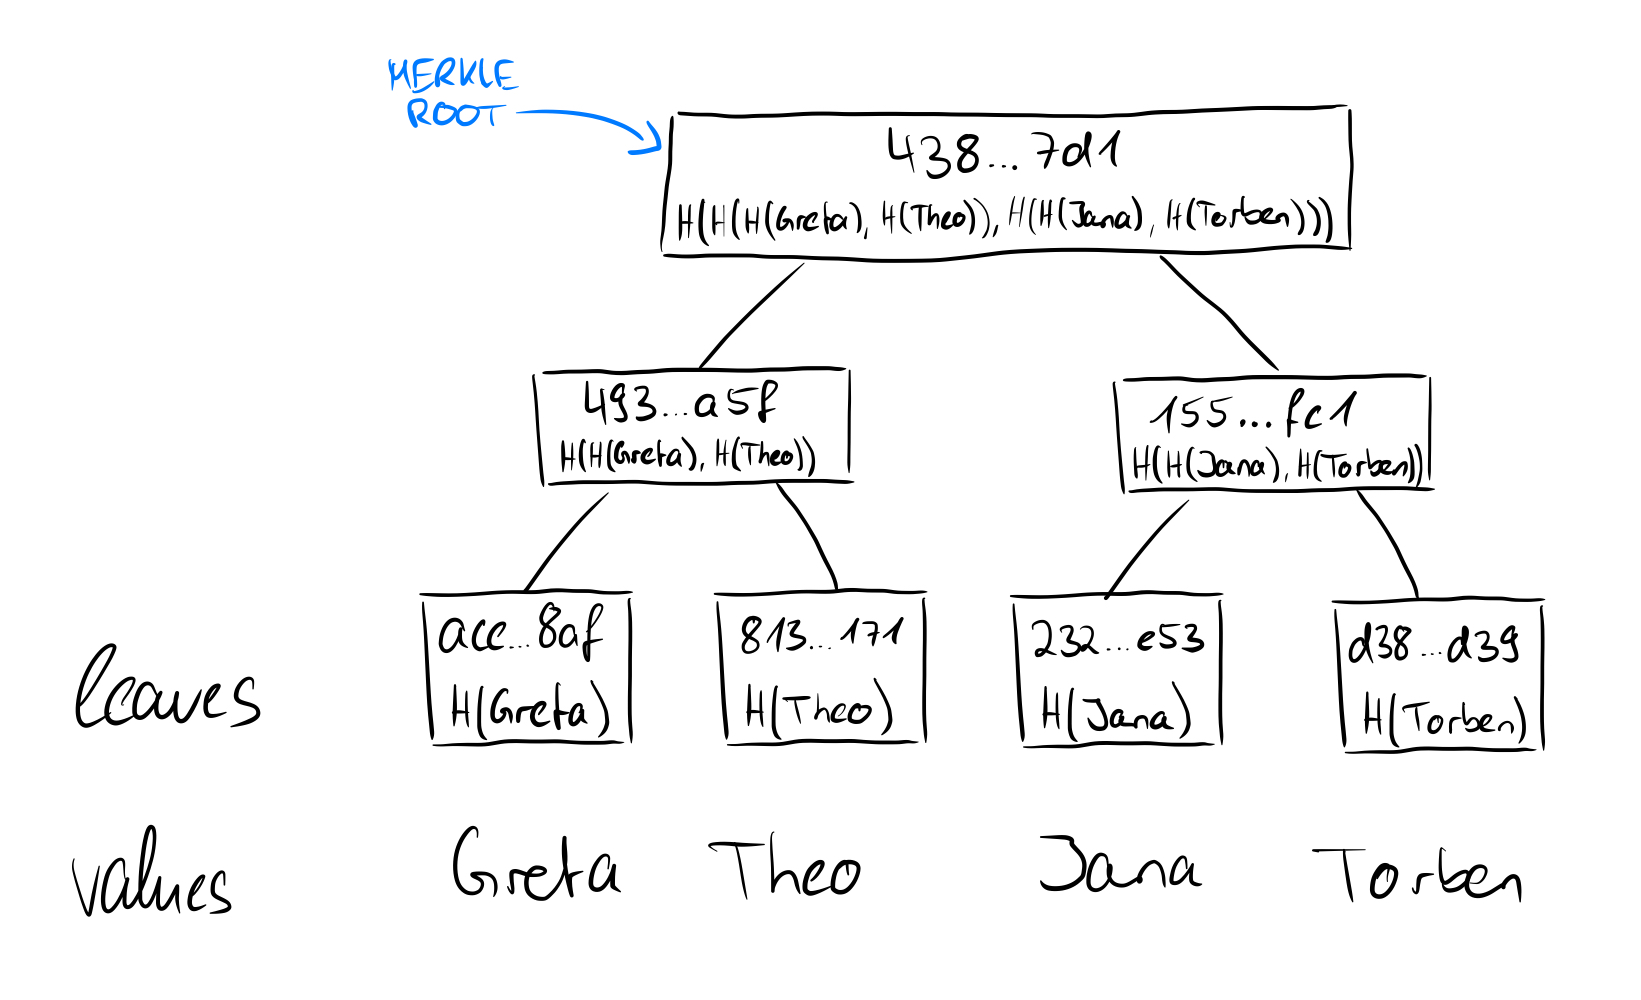 MERKLE
ROOT
438...7d1
H(H(H(Greta), H(Theo)), H(H(Jana), H(Torben)))
493...a5f
H(H(Greta), H(Theo))
155...fc1
H(H(Jana), H(Torben))
leaves
acc...8af
H(Greta)
813...171
H(Theo)
232...e53
H(Jana)
d38...d39
H(Torben)
values
Greta
Theo
Jana
Torben